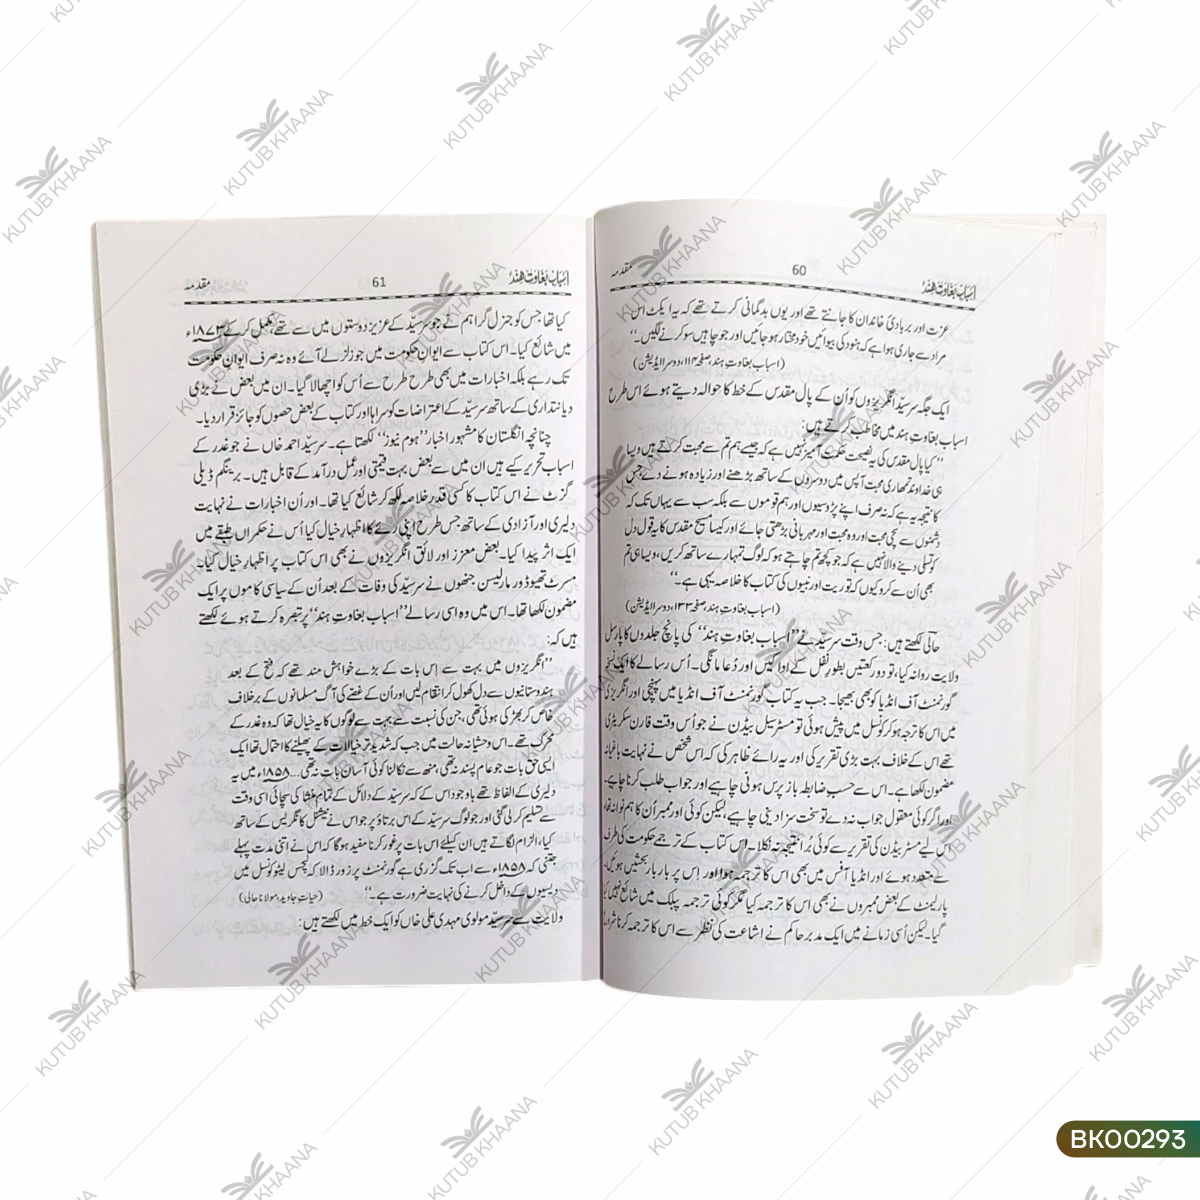 اسباب بغاوتِ ہند 60 مقدمہ
عزت اور بربادیٔ خاندان کا جانتے تھے اور یوں بدگمانی کرتے تھے کہ یہ ایکٹ اس
مراد سے جاری ہوا ہے کہ ہنود کی بیوائیں خود مختار ہو جائیں اور جو چاہیں سو کرنے لگیں۔‘‘
(اسباب بغاوتِ ہند، صفحہ ۱۱۴، دوسرا ایڈیشن)
ایک جگہ سرسیّد انگریزوں کو اُن کے پال مقدس کے خط کا حوالہ دیتے ہوئے اس طرح
اسباب بغاوتِ ہند میں مخاطب کرتے ہیں:
’’کیا پال مقدس کی یہ نصیحت حکمت آمیز نہیں ہے کہ جیسے ہم تم سے محبت کرتے ہیں ویسا
ہی خداوند تمھاری محبت آپس میں دوسروں کے ساتھ بڑھنے اور زیادہ ہونے دے جس
کا نتیجہ یہ ہے کہ نہ صرف اپنے پڑوسیوں اور ہم قوموں سے بلکہ سب سے یہاں تک کہ
دشمنوں سے سچی محبت اور وہ محبت اور مہربانی بڑھتی جائے اور کیسا مسیح مقدس کا یہ قول دل
کو تسلی دینے والا نہیں ہے کہ جو کچھ تم چاہتے ہو کہ لوگ تمہارے ساتھ کریں، ویسا ہی تم
بھی اُن سے کرو کیوں کہ توریت اور نبیوں کی کتاب کا خلاصہ یہی ہے۔‘‘
(اسباب بغاوتِ ہند، صفحہ ۱۳۲، دوسرا ایڈیشن)
حالی لکھتے ہیں: جس وقت سرسیّد نے ’’اسباب بغاوتِ ہند‘‘ کی پانچ جلدوں کا پارسل
ولایت روانہ کیا، تو دو رکعتیں بطور نفل کے ادا کیں اور دُعا مانگی۔ اُس رسالے کا ایک نسخہ
گورنمنٹ آف انڈیا کو بھی بھیجا۔ جب یہ کتاب گورنمنٹ آف انڈیا میں پہنچی اور انگریزی
میں اس کا ترجمہ ہو کر کونسل میں پیش ہوئی تو مسٹر سیسل بیڈن نے جو اُس وقت فارن سکریٹری
تھے اس کے خلاف بہت بڑی تقریر کی اور یہ رائے ظاہر کی کہ اس شخص نے نہایت باغیانہ
مضمون لکھا ہے۔ اس سے حسب ضابطہ باز پرس ہونی چاہیے اور جواب طلب کرنا چاہیے۔
اور اگر کوئی معقول جواب نہ دے تو سخت سزا دینی چاہیے، لیکن کوئی اور ممبر اُن کا ہم نوا نہ تھا،
اس لیے مسٹر بیڈن کی تقریر سے کوئی بُرا نتیجہ نہ نکلا۔ اس کتاب کے ترجمے حکومت کی طرف
سے متعدد ہوئے اور انڈیا آفس میں بھی اس کا ترجمہ ہوا اور اِس پر بار بار بحثیں ہوئیں۔
پارلیمنٹ کے بعض ممبروں نے بھی اس کا ترجمہ کیا مگر کوئی ترجمہ پبلک میں شائع نہیں کیا
گیا۔ لیکن اُسی زمانے میں ایک مدبر حاکم نے اشاعت کی نظر سے اس کا ترجمہ کرنا شروع
اسباب بغاوتِ ہند 61 مقدمہ
کیا تھا جس کو جنرل گراہم نے جو سرسیّد کے عزیز دوستوں میں سے تھے، مکمل کر کے ۱۸۷۳ء
میں شائع کیا۔ اس کتاب سے ایوانِ حکومت میں جو زلزلے آئے وہ نہ صرف ایوانِ حکومت
تک رہے بلکہ اخبارات میں بھی طرح طرح سے اُس کو اچھالا گیا۔ ان میں بعض نے بڑی
دیانتداری کے ساتھ سرسیّد کے اعتراضات کو سراہا اور کتاب کے بعض حصوں کو جائز قرار دیا۔
چنانچہ انگلستان کا مشہور اخبار ’’ہوم نیوز‘‘ لکھتا ہے۔ سرسیّد احمد خاں نے جو غدر کے
اسباب تحریر کیے ہیں ان میں سے بعض بہت قیمتی اور عمل درآمد کے قابل ہیں۔ برمنگھم ڈیلی
گزٹ نے اس کتاب کا کسی قدر خلاصہ لکھ کر شائع کیا تھا۔ اور اُن اخبارات نے نہایت
دلیری اور آزادی کے ساتھ جس طرح اپنی رائے کا اظہارِ خیال کیا اُس نے حکمراں طبقے میں
ایک اثر پیدا کیا۔ بعض معزز اور لائق انگریزوں نے بھی اس کتاب پر اظہارِ خیال کیا۔
مسٹر تھیوڈور ماریسن جنھوں نے سرسیّد کی وفات کے بعد اُن کے سیاسی کاموں پر ایک
مضمون لکھا تھا۔ اس میں وہ اسی رسالے ’’اسباب بغاوتِ ہند‘‘ پر تبصرہ کرتے ہوئے لکھتے
ہیں کہ:
’’انگریزوں میں بہت سے اِس بات کے بڑے خواہش مند تھے کہ فتح کے بعد
ہندوستانیوں سے دل کھول کر انتقام لیں اور اُن کے غصے کی آگ مسلمانوں کے برخلاف
خاص کر بھڑکی ہوئی تھی، جن کی نسبت سے بہت سے لوگوں کا یہ خیال تھا کہ وہ غدر کے
محرک تھے۔ اس وحشیانہ حالت میں جب کہ شدید تر خیالات کے پھیلنے کا احتمال تھا ایک
ایسی حق بات جو عام پسند نہ تھی، منھ سے نکالنا کوئی آسان بات نہ تھی... ۱۸۵۸ء میں یہ
دلیری کے الفاظ تھے باوجود اس کے کہ سرسیّد کے دلائل کے تمام منشا کی سچائی اسی وقت
سے تسلیم کر لی گئی اور جو لوگ سرسیّد کے اس برتاؤ پر جو اس نے نیشنل کانگریس کے ساتھ
کیا، الزام لگاتے ہیں ان کیلئے اس بات پر غور کرنا مفید ہوگا کہ اس نے اتنی مدت پہلے
جتنی کہ ۱۸۵۸ء سے اب تک گزری ہے گورنمنٹ پر زور ڈالا کہ لیجس لیٹو کونسل میں
دیسیوں کے داخل کرنے کی نہایت ضرورت ہے۔‘‘ (حیاتِ جاوید، مولانا حالی)
ولایت سے سرسیّد مولوی مہدی علی خاں کو ایک خط میں لکھتے ہیں:
KUTUB KHAANA
BK00293